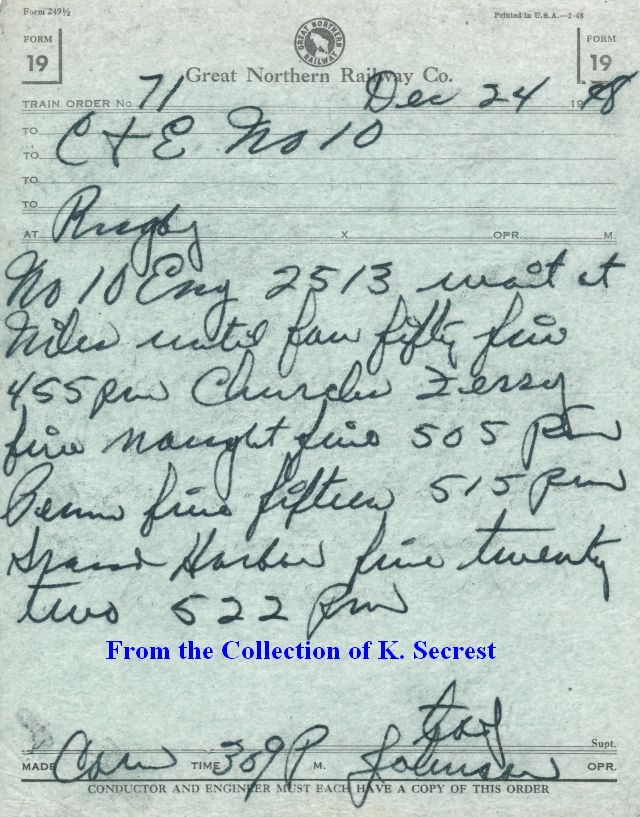 Form 249½
Printed in U.S.A.—2-48
FORM
19
GREAT NORTHERN RAILWAY
FORM
19
Great Northern Railway Co.
TRAIN ORDER No. 71 Dec 24 1948
TO C + E No 10
TO
TO
TO
AT Rugby X OPR. M.
No 10 Eng 2513 wait at
Niles until four fifty five
455 pm Churchs Ferry
five naught five 505 pm
Penn five fifteen 515 pm
Grand Harbor five twenty
two 522 pm
From the Collection of K. Secrest
Supt.
MADE Com TIME 309 P M. Johnson OPR.
CONDUCTOR AND ENGINEER MUST EACH HAVE A COPY OF THIS ORDER